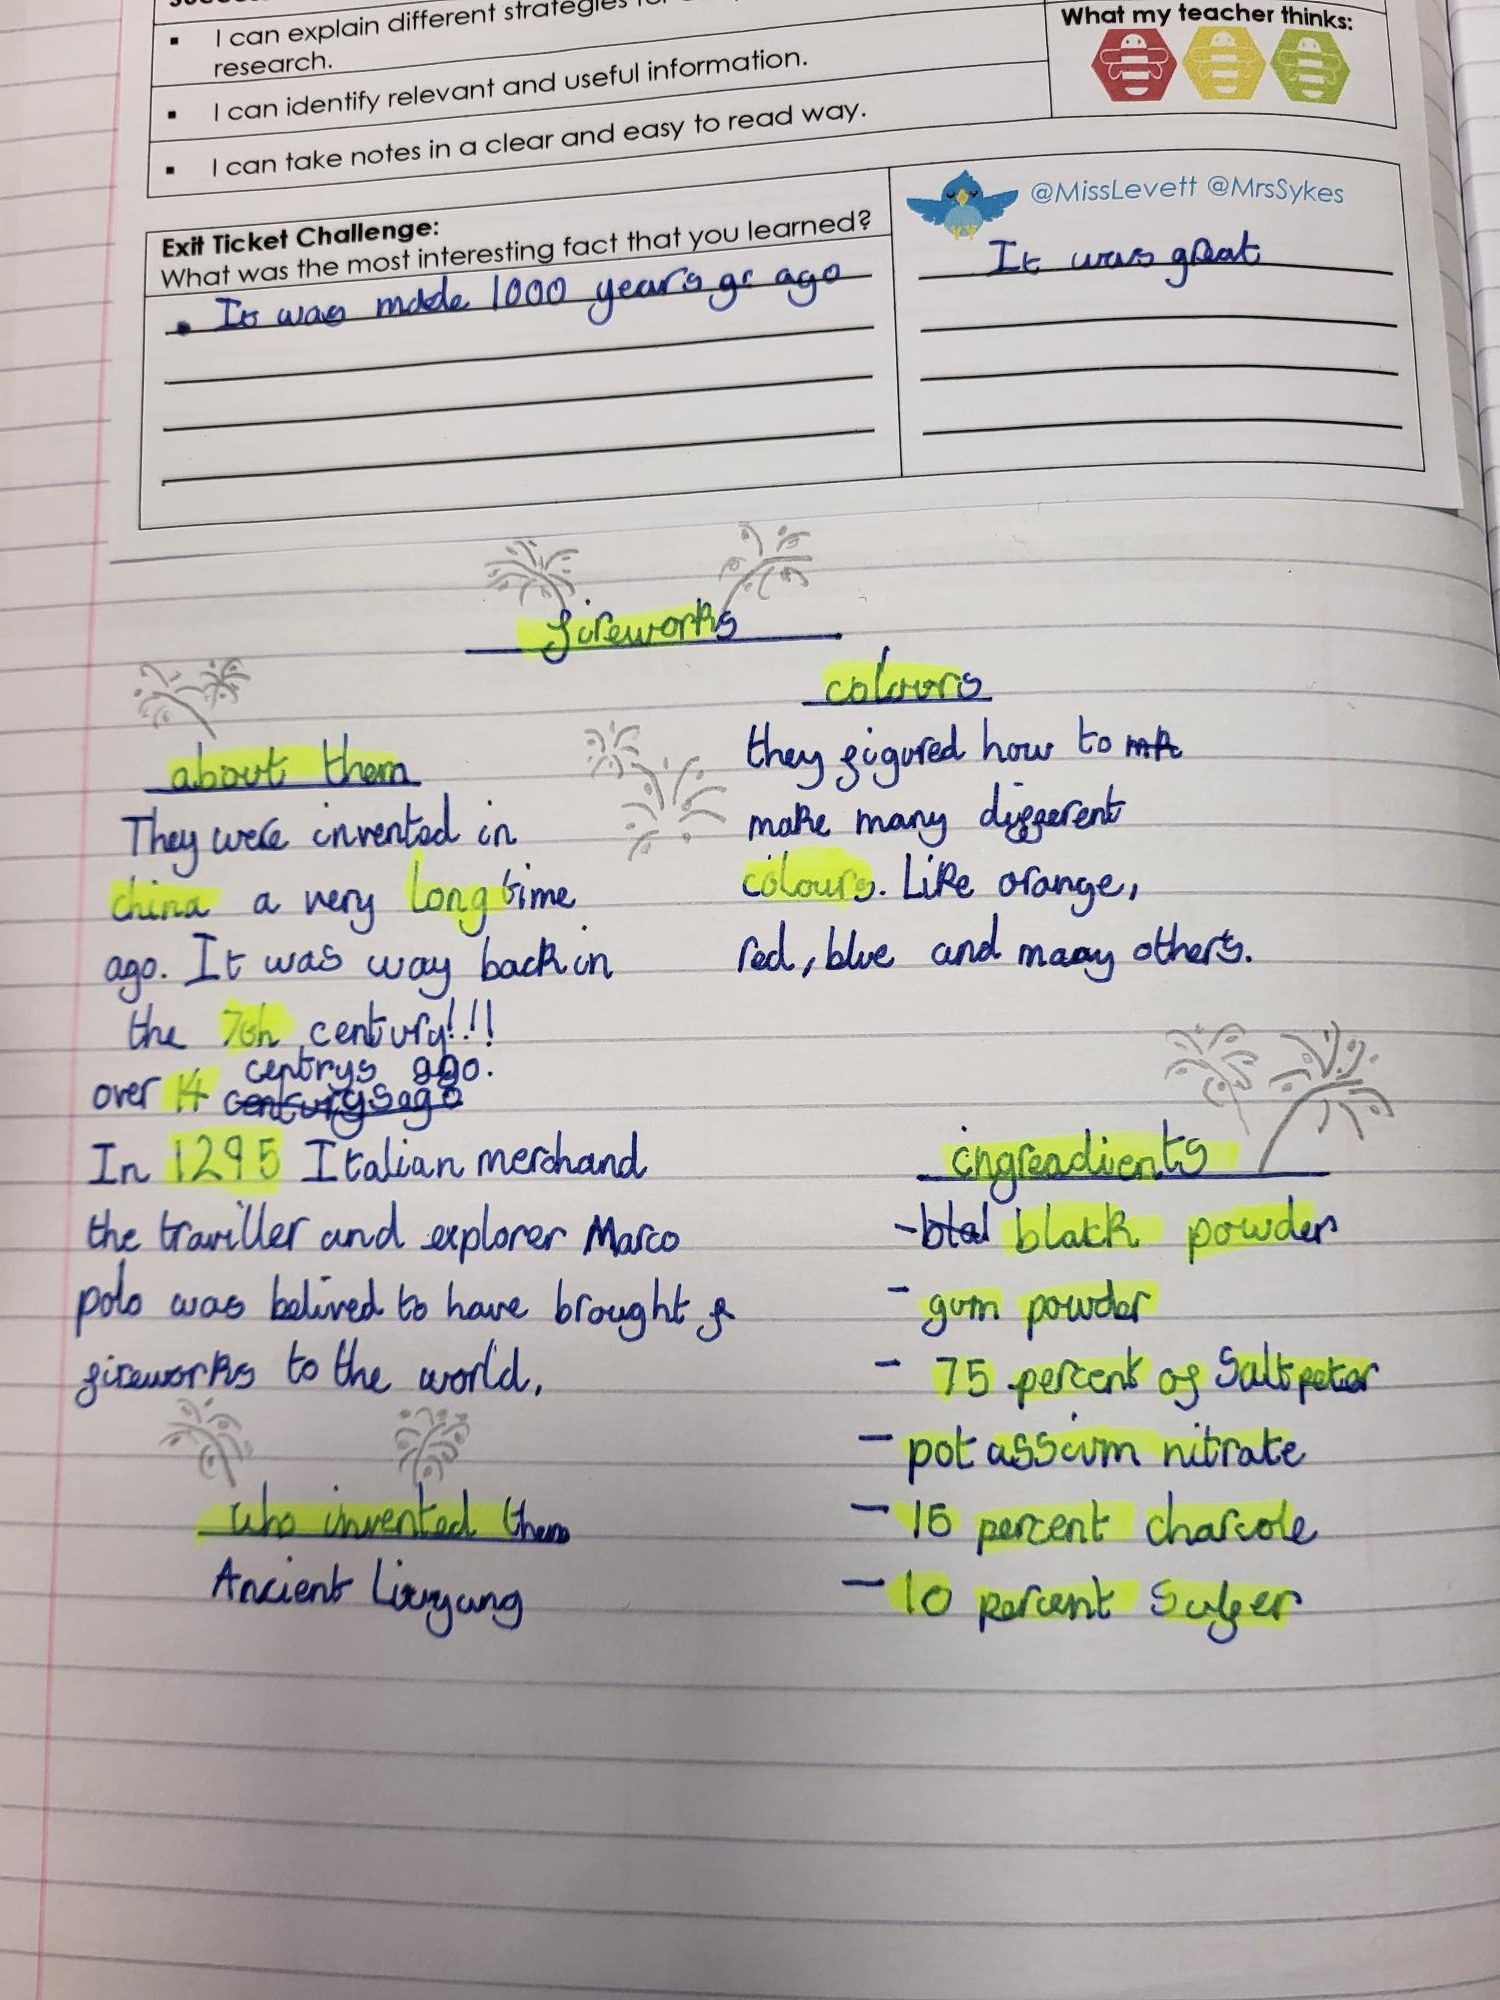 I can explain different strategies
research.
I can identify relevant and useful information.
I can take notes in a clear and easy to read way.
What my teacher thinks:
Exit Ticket Challenge:
What was the most interesting fact that you learned?
It was made 1000 years ago
@MissLevett @MrsSykes
It was great
fireworks
about them
They were invented in
china a very long time
ago. It was way back in
the 7th century!!!
over 14 centrys ago.
centurys ago
In 1295 Italian merchand
the traviller and explorer Marco
polo was belived to have brought f
fireworks to the world.
who invented them
Ancient Liuyang
colours
they figured how to
make many different
colours. Like orange,
red, blue and many others.
ingreadients
- black powder
- gum powder
- 75 percent of Saltpeter
- potassium nitrate
- 15 percent charcole
- 10 percent Sulfer